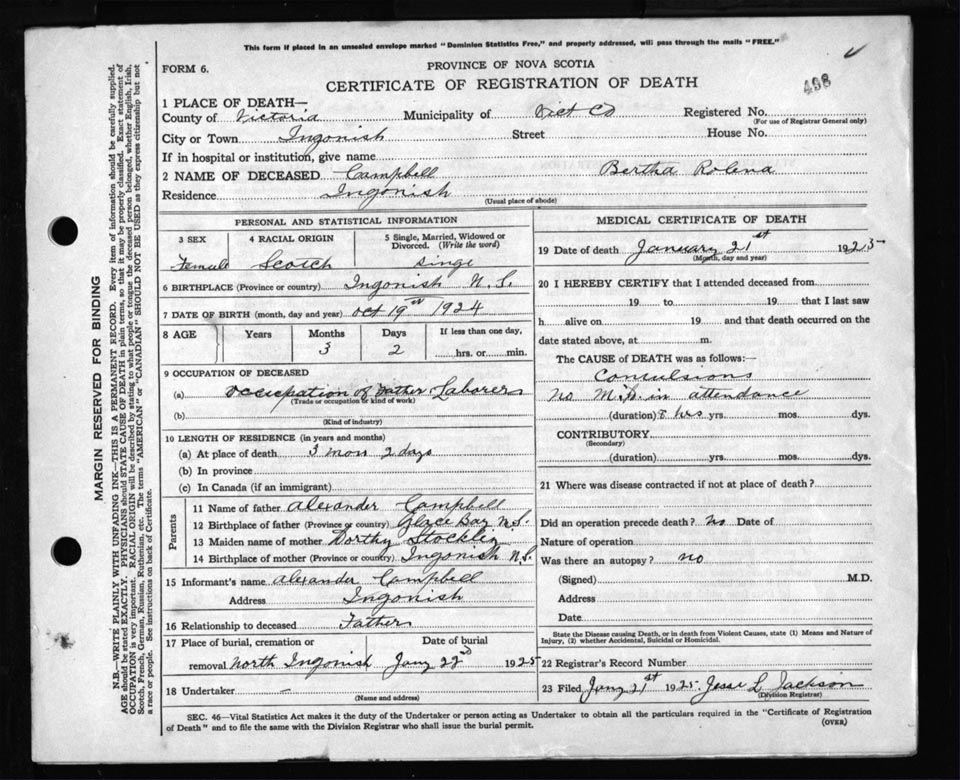 This form if placed in an unsealed envelope marked "Dominion Statistics Free," and properly addressed, will pass through the mails "FREE."
FORM 6.
PROVINCE OF NOVA SCOTIA
CERTIFICATE OF REGISTRATION OF DEATH
498
1 PLACE OF DEATH—
County of Victoria Municipality of Vict Co Registered No.
(For use of Registrar General only)
City or Town Ingonish Street House No.
If in hospital or institution, give name
2 NAME OF DECEASED Campbell Bertha Rolena
Residence Ingonish
(Usual place of abode)
PERSONAL AND STATISTICAL INFORMATION
3 SEX 4 RACIAL ORIGIN 5 Single, Married, Widowed or Divorced. (Write the word)
Female Scotch singe
6 BIRTHPLACE (Province or country) Ingonish N. S.
7 DATE OF BIRTH (month, day and year) Oct 19th 1924
8 AGE Years Months Days If less than one day,
3 2 hrs. or min.
9 OCCUPATION OF DECEASED
(a) Occupation of Father Laborer
(Trade or occupation or kind of work)
(b)
(Kind of industry)
10 LENGTH OF RESIDENCE (in years and months)
(a) At place of death 3 mon 2 days
(b) In province
(c) In Canada (if an immigrant)
Parents
11 Name of father Alexander Campbell
12 Birthplace of father (Province or country) Glace Bay N.S.
13 Maiden name of mother Dorthy Stockley
14 Birthplace of mother (Province or country) Ingonish N.S.
15 Informant's name Alexander Campbell
Address Ingonish
16 Relationship to deceased Father
17 Place of burial, cremation or Date of burial
removal North Ingonish Jany 22nd 1925
18 Undertaker –
(Name and address)
MEDICAL CERTIFICATE OF DEATH
19 Date of death January 21st 1925
(Month, day and year)
20 I HEREBY CERTIFY that I attended deceased from
19 to 19 that I last saw
h alive on 19 and that death occurred on the
date stated above, at m.
The CAUSE of DEATH was as follows:—
Convulsions
No M.D. in attendance
(duration) 8 hrs yrs. mos. dys.
CONTRIBUTORY
(Secondary)
(duration) yrs. mos. dys.
21 Where was disease contracted if not at place of death?
Did an operation precede death? no Date of
Nature of operation
Was there an autopsy? no
(Signed) M.D.
Address
Date
State the Disease causing Death, or in death from Violent Causes, state (1) Means and Nature of
Injury, (2) whether Accidental, Suicidal or Homicidal.
22 Registrar's Record Number
23 Filed Jany 21st 1925 Jesse L Jackson
(Division Registrar)
SEC. 46—Vital Statistics Act makes it the duty of the Undertaker or person acting as Undertaker to obtain all the particulars required in the "Certificate of Registration
of Death" and to file the same with the Division Registrar who shall issue the burial permit.
(OVER)
MARGIN RESERVED FOR BINDING
N.B.—WRITE PLAINLY WITH UNFADING INK—THIS IS A PERMANENT RECORD. Every item of information should be carefully supplied.
AGE should be stated EXACTLY. PHYSICIANS should STATE CAUSE OF DEATH in plain terms, so that it may be properly classified. Exact statement of
OCCUPATION is very important. RACIAL ORIGIN will be described by stating to what people or tongue the deceased person belonged, whether English, Irish,
Scotch, French, German, Russian, Ruthenian, etc. The terms "AMERICAN" or "CANADIAN" SHOULD NOT BE USED as they express citizenship but not
a race or people. See instructions on back of Certificate.